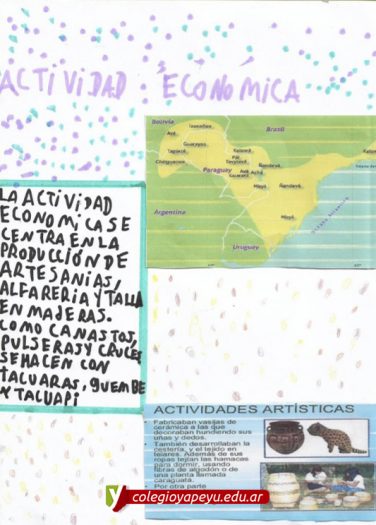 ACTIVIDAD ECONÓMICA
Bolivia
Brasil
Isoseños
Avá
Guarayos
Tapieté
Chiriguanos
Kaiowá
Paí
Tavyterá
Paraguay
Avá
Aché
Ñandevá
Mbyá
Ñandevá
Kaiowá
Mbyá
Argentina
Uruguay
Océano Atlántico
LA ACTIVIDAD
ECONOMICA SE
CENTRA EN LA
PRODUCCIÓN DE
ARTESANIAS,
ALFARERIA Y TALLA
EN MADERAS.
COMO CANASTOS,
PULSERAS Y CRUCES
SE HACEN CON
TACUARAS, guEMBE
Y TACUAPI
ACTIVIDADES ARTÍSTICAS
• Fabricaban vasijas de
cerámica a las que
decoraban hundiendo sus
uñas y dedos.
• También desarrollaban la
cestería, y el tejido en
telares. Además de sus
ropas tejían las hamacas
para dormir, usando
fibras de algodón o de
una planta llamada
caraguatá.
• Por otra parte
y colegioyapeyu.edu.ar